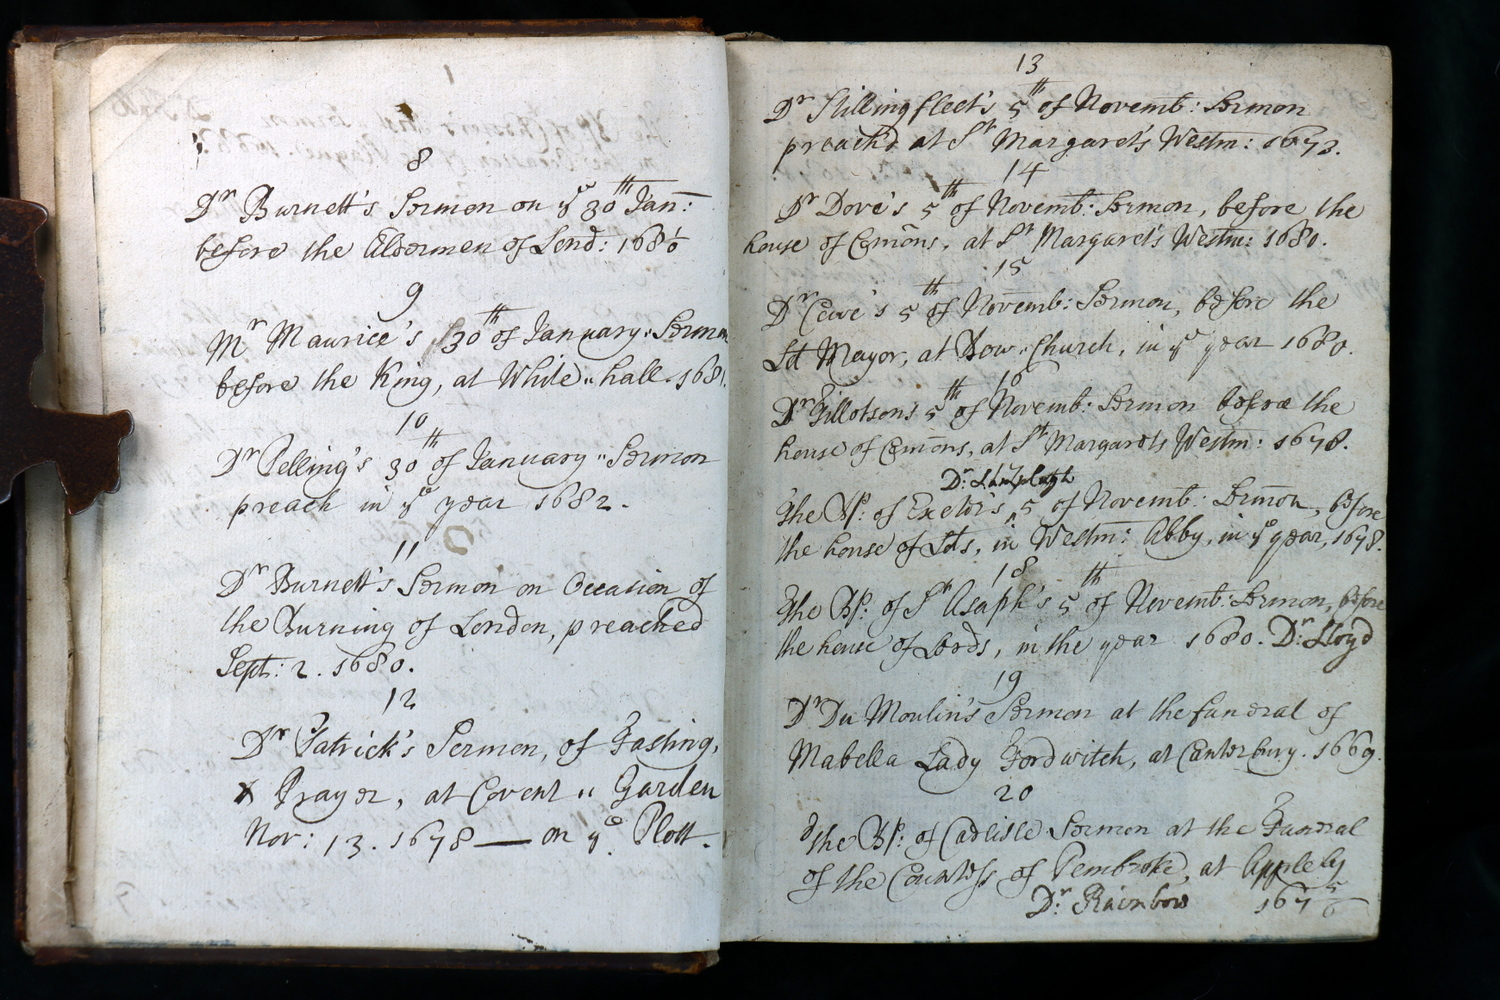 8
Dr Burnett's Sermon on ye 30th Jan:
before the Aldermen of Lond: 1680
9
Mr Maurice's 30th of January Sermon
before the King, at White hall. 1681
10
Dr Pelling's 30th of January Sermon
preach in ye year 1682.
11
Dr Burnett's Sermon on Occasion of
the Burning of London, preached
Sept: 2. 1680.
12
Dr Patrick's Sermon, of Fasting,
& Prayer, at Covent Garden
Nov: 13. 1678 — on ye Plott.
13
Dr Stillingfleet's 5th of Novemb: Sermon
preach'd at St Margaret's Westm: 1673.
14
Dr Dove's 5th of Novemb: Sermon, before the
house of Comōns, at St Margaret's Westm: 1680.
15
Dr Cave's 5th of Novemb: Sermon, before the
Ld Mayor, at Bow Church, in ye year 1680.
16
Dr Tillotsons 5th of Novemb: Sermon before the
house of Comōns, at St Margarets Westm: 1678.
17
Dr: Lamplugh
The Bp: of Exeter's 5 of Novemb: Sermon, before
the house of Lds, in Westm: Abby, in ye year, 1678.
18
The Bp: of St Asaph's 5th of Novemb: Sermon, before
the house of Lords, in the year 1680. Dr: Lloyd
19
Dr Du Moulin's Sermon at the funeral of
Mabella Lady Fordwitch, at Canterbury. 1669.
20
The Bp: of Carlisle Sermon at the Funeral
of the Countess of Pembroke, at Appleby
Dr: Rainbow 167 5/6